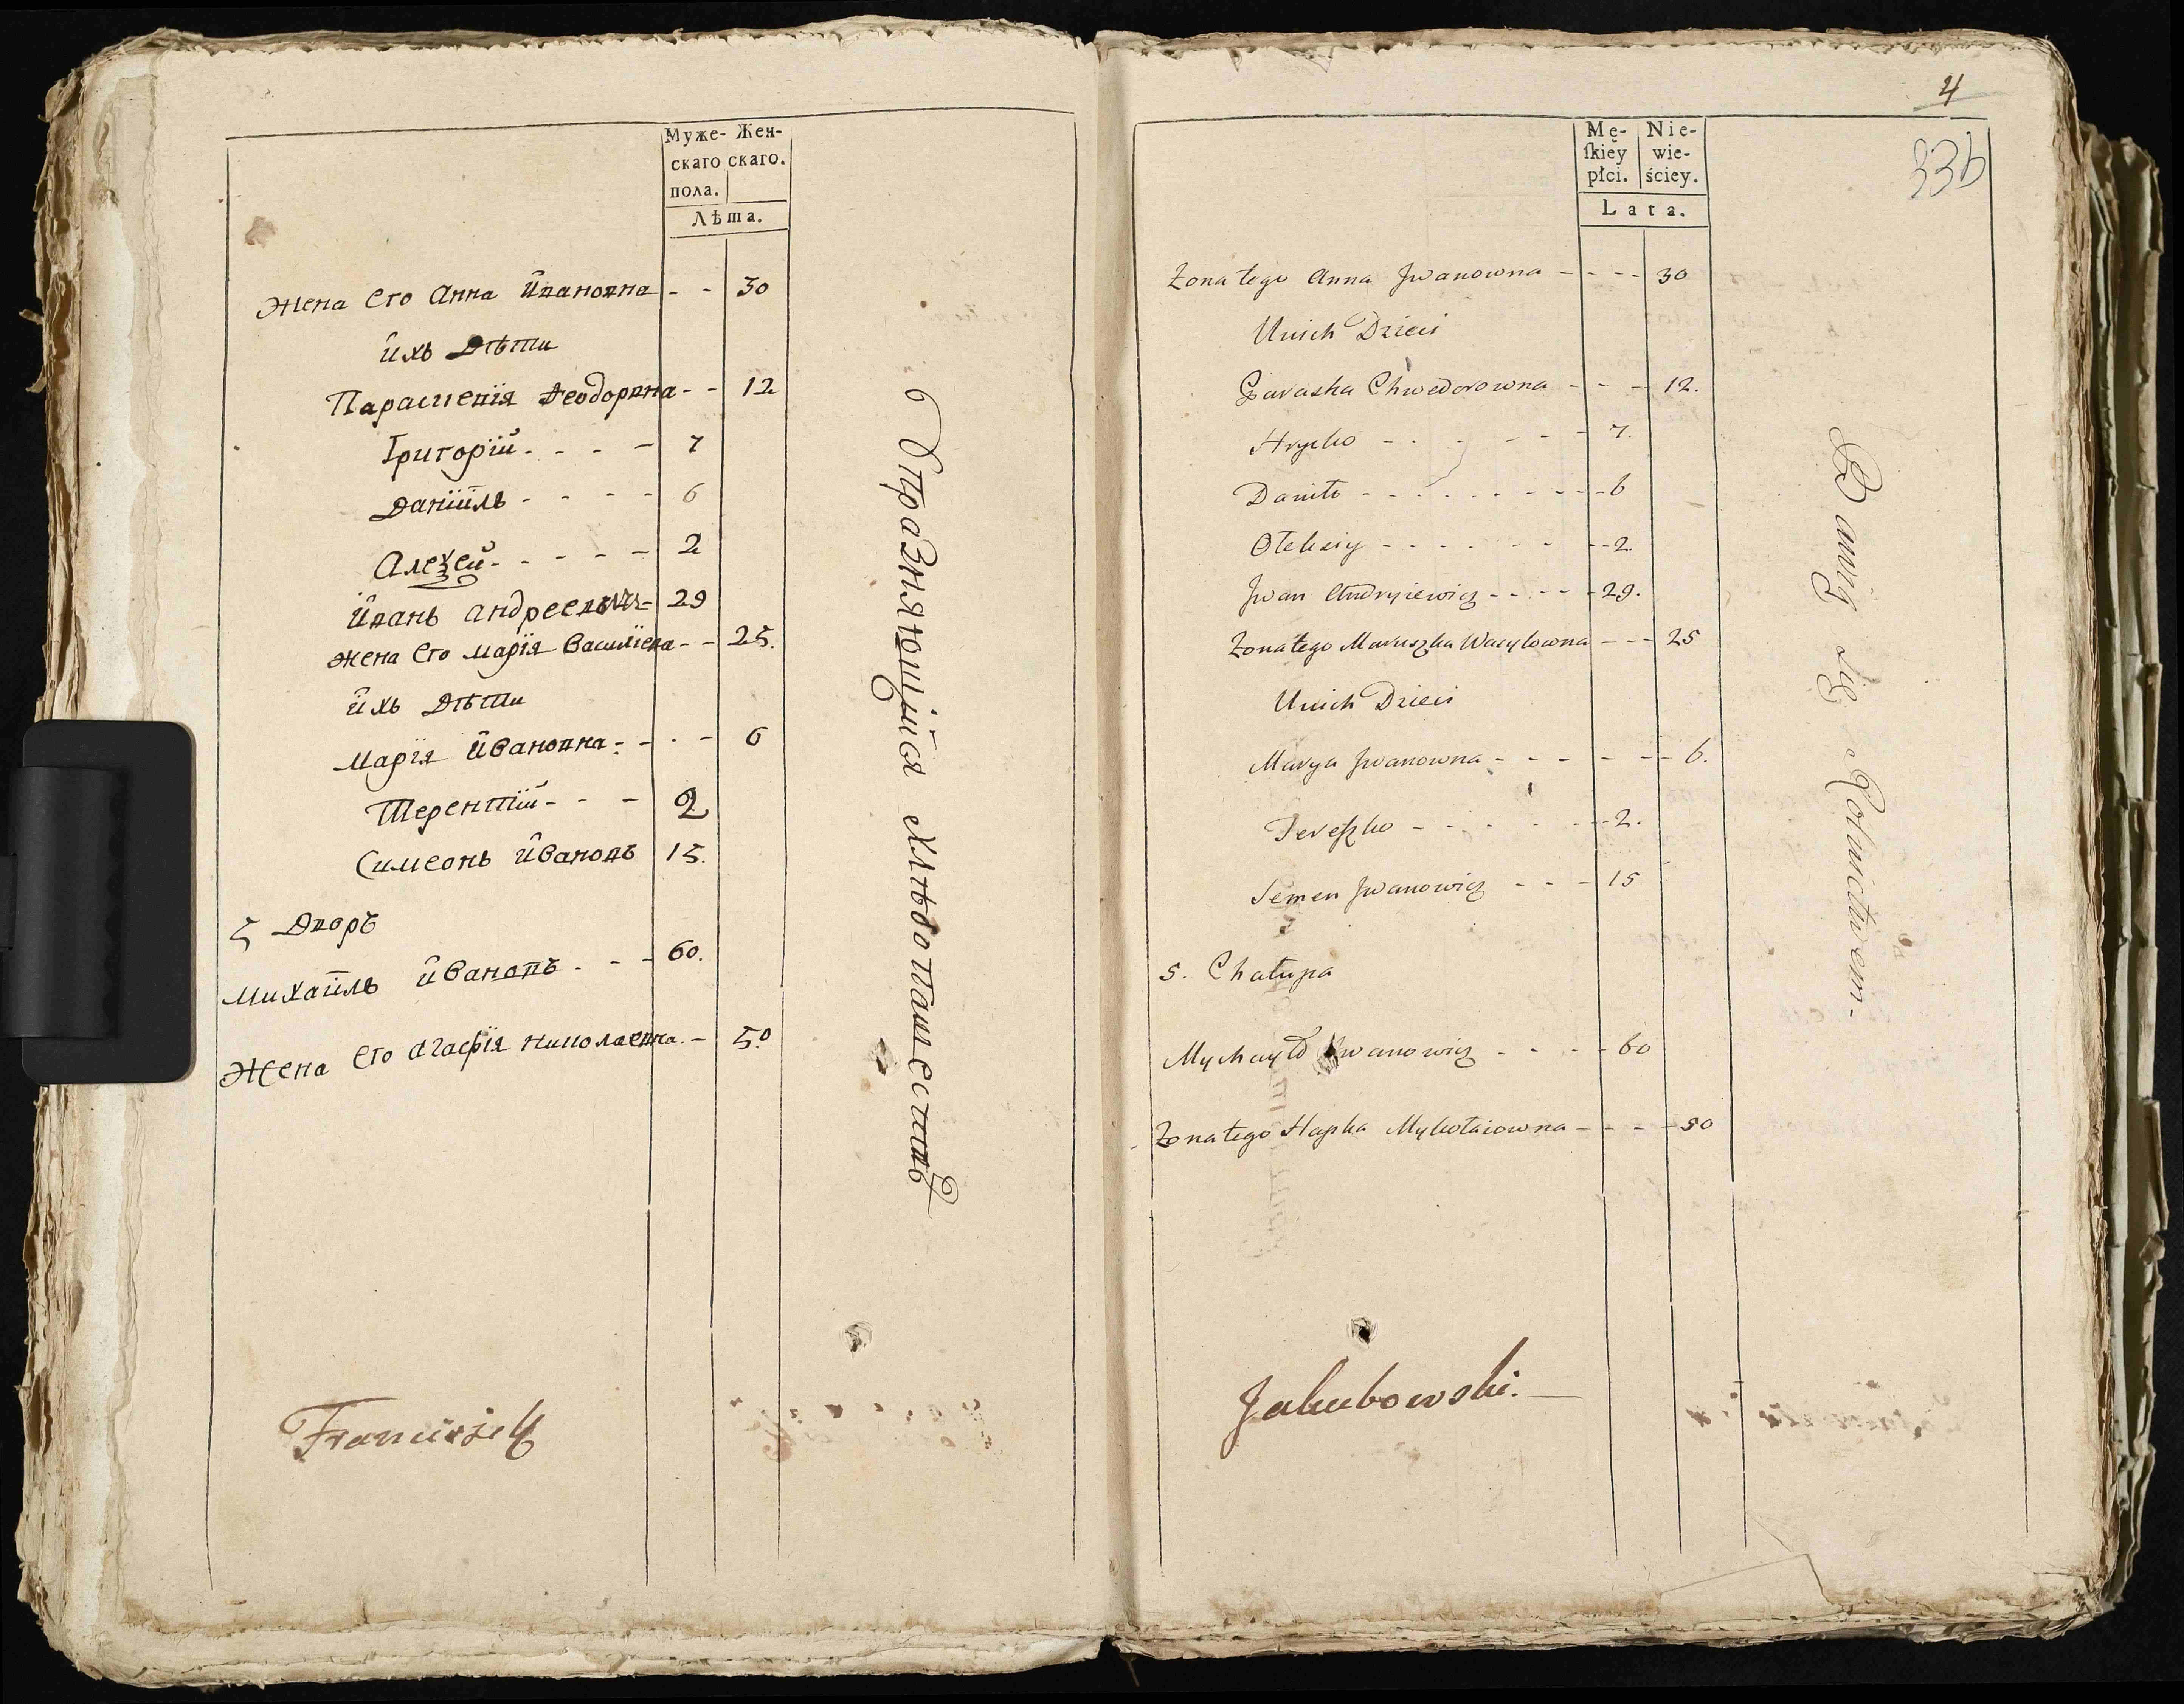 Муже- Жен-
скаго скаго.
пола.
Лѣта.
Жена Его Анна Ивановна - - 30
ихъ Дѣти
Параскевія Феодоровна - - 12
Григорій - - - - 7
Даніилъ - - - - 6
Алеѯей - - - - 2
Иванъ Андреевъ 29
жена Его Марія Василіева - - 25.
ихъ Дѣти
Марія Ивановна - - - - 6
Терентій - - - 2
Симеонъ Ивановъ 15.
5 Дворъ
Михаилъ Ивановъ - - - 60.
Жена Его Агафія Николаевна - 50
Упражняющійся хлѣбопашествѣ
Francisjek
4
Mę- Nie-
ſkiey wie-
płci. ściey.
Lata.
33b
Zona tego Anna Jwanowna - - - - 30
Unich Dzieci
Paraska Chwedorowna - - - 12.
Hrycko - - - - - - 7.
Daniło - - - - - - - - - 6
Ołeksiy - - - - - - - 2.
Jwan Andryiewicz - - - - - 29.
Zona tego Maruszka Wasylowna - - - 25
Unich Dzieci
Marya Jwanowna - - - - - - 6.
Tereszko - - - - - - - 2.
Semen Jwanowicz - - - 15
5. Chałupa
Mychayło Jwanowicz - - - - 60
Zona tego Hapka Mykołaiowna - - - - 50
Bawią się Rolnictwem.
Jakubowski.